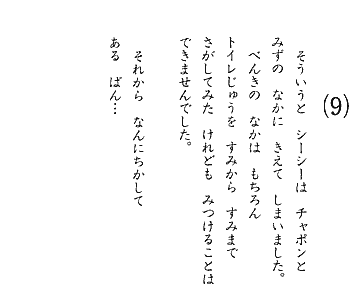 (9)
そういうと シーシーは チャポンと
みずの なかに きえて しまいました。
べんきの なかは もちろん
トイレじゅうを すみから すみまで
さがしてみた けれども みつけることは
できませんでした。
それから なんにちかして
ある ばん…